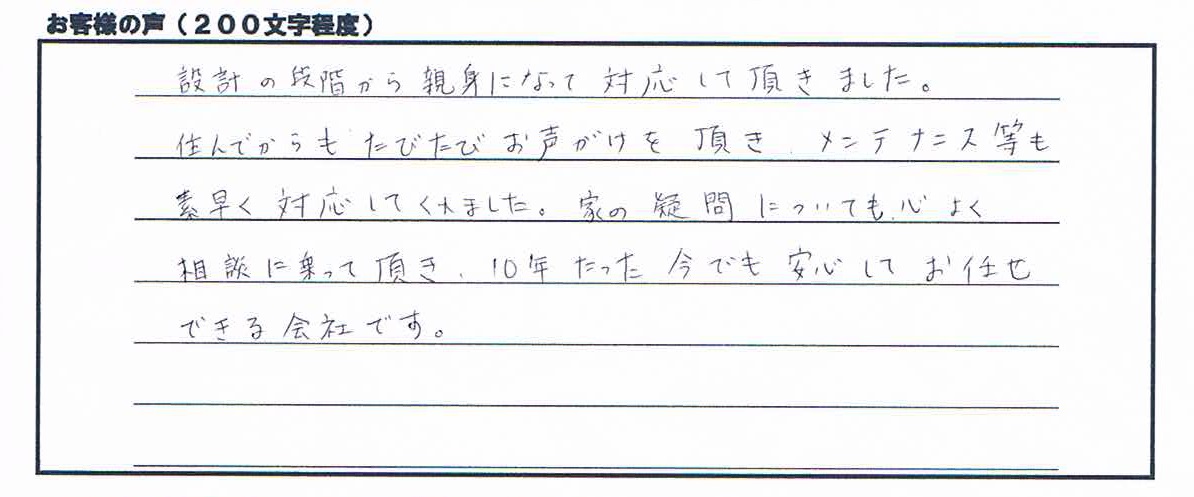 お客様の声（２００文字程度）
設計の段階から親身になって対応して頂きました。
住んでからもたびたびお声がけを頂き、メンテナンス等も
素早く対応してくれました。家の疑問についても、心よく
相談に乗って頂き、10年たった今でも安心してお任せ
できる会社です。